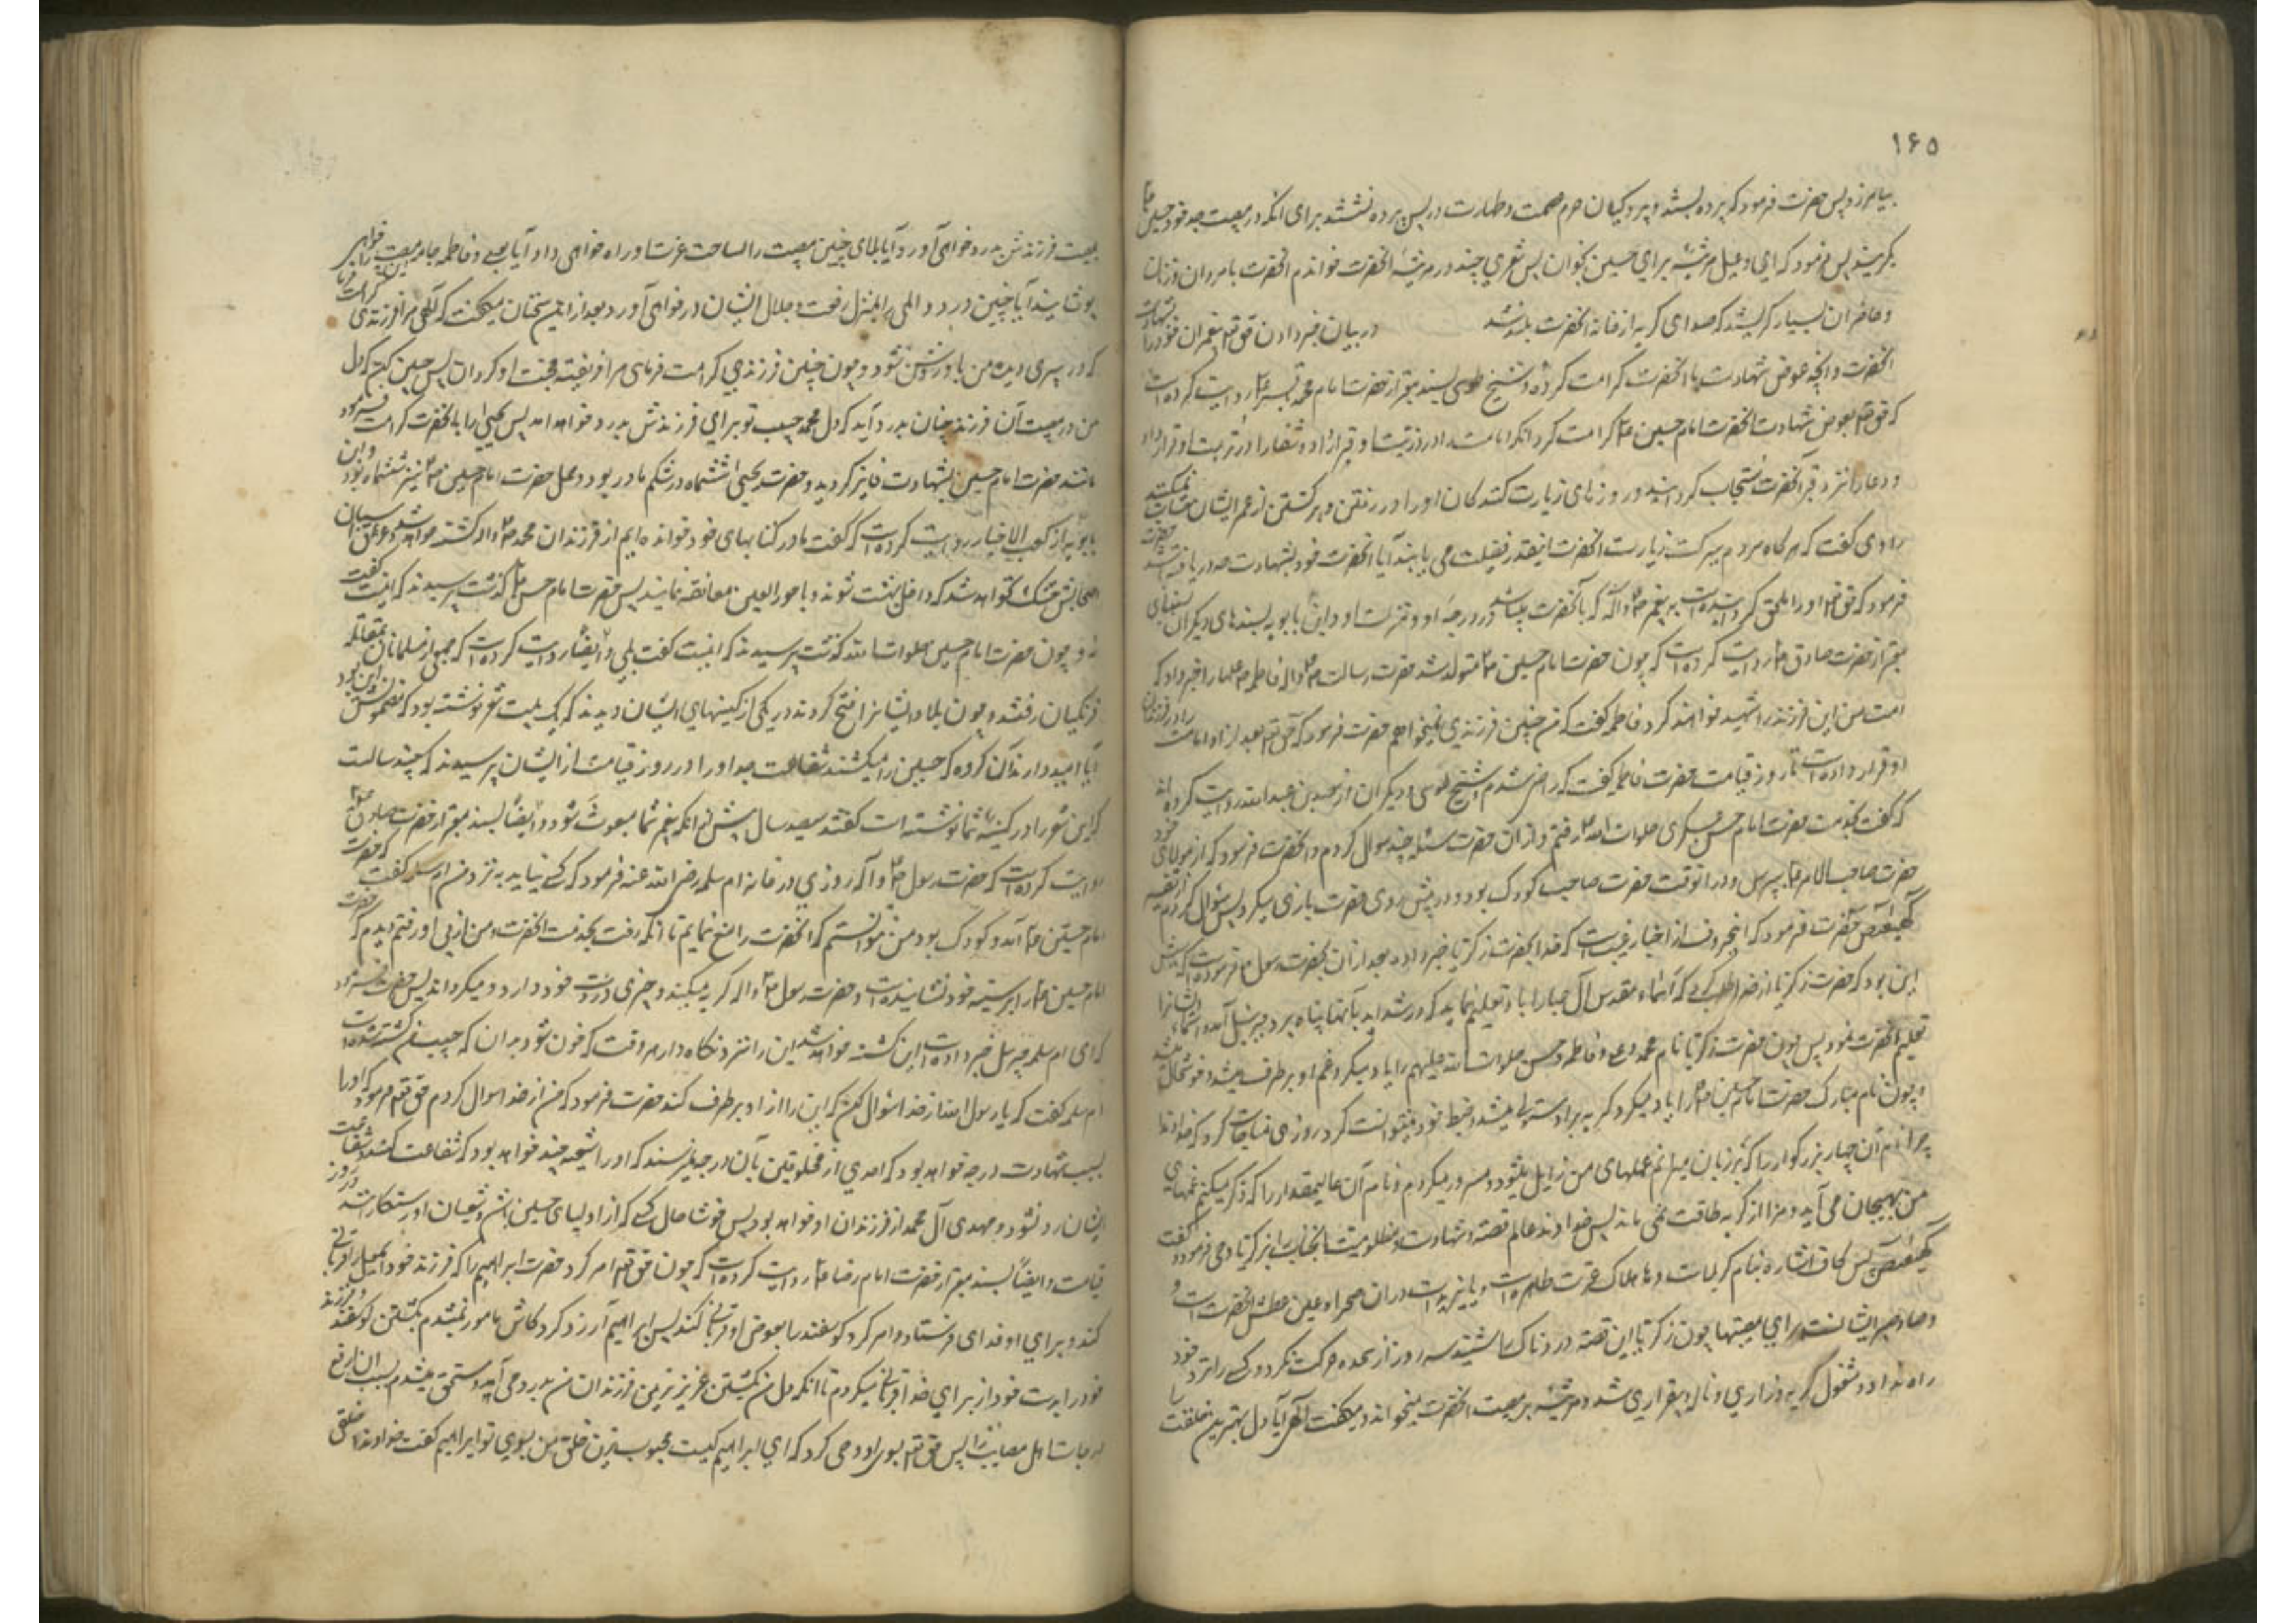 ۱۶۵
بیامرزد پس حضرت فرمود که پرده بستند و پردگیان حرم عصمت و طهارت در پس پرده نشستند برای آنکه در مصیبت جد خود حسین ع
بگریند پس فرمود که ای دعبل مرثیه برای حسین بخوان پس شعری چند در مرثیه آنحضرت خواندم آنحضرت با مردان و زنان
و حاضران بسیار گریستند که صدای گریه از خانه آنحضرت بلند شد در بیان خبر دادن حق تع پیغمبران خود را بشهادت
آنحضرت و آنچه عوض شهادت با آنحضرت کرامت کرده و شیخ طوسی بسند معتبر از حضرت امام محمد باقر ع روایت کرده است
که حق تع بعوض شهادت آنحضرت امام حسین ع کرامت کرد آنکه امامت را در ذریت او قرار داد و شفا را در تربت او قرار داد
و دعا را نزد قبر آنحضرت مستجاب گردانید و روزهای زیارت کنندگان او را در رفتن و برگشتن از عمر ایشان حساب نمیکنند
راوی گفت که هرگاه مردم ببرکت زیارت آنحضرت اینقدر فضیلت می یابند آیا آنحضرت خود بشهادت چه دریافته باشد حضرت
فرمود که حق تع او را ملحق گردانیده است به پیغمبر ص و آله که با آنحضرت باشد در درجه او و منزلت او و ابن بابویه بسندهای دیگران بسندهای
معتبر از حضرت صادق ع روایت کرده است که چون حضرت امام حسین ع متولد شد حضرت رسالت ص و آله فاطمه ع علیها را خبر داد که
امت من این فرزند را شهید خواهند کرد فاطمه گفت که من چنین فرزندی نمیخواهم حضرت فرمود که حق تع بعد از او امامت را در فرزندان
او قرار داده است تا روز قیامت حضرت فاطمه گفت که راضی شدم و شیخ طوسی و دیگران از سعد بن عبدالله روایت کرده اند
که گفت بخدمت حضرت امام حسن عسکری صلوات الله رفتم و از آن حضرت مسئله چند سوال کردم و آنحضرت فرمود که از مولای خود
حضرت صاحب الامر ع بپرس و در آنوقت حضرت صاحب کودک بود و در پیش روی حضرت بازی میکرد پس سئوال کردم از تفسیر
کهیعص حضرت فرمود که این حروف از اخبار غیبست که خدا بحضرت زکریا خبر داده و بعد از آن بحضرت رسول ص فرموده است که اش
این بود که حضرت زکریا از خدا طلب کرد که اسماء مقدس آل عبا را باو تعلیم نماید که در شداید بآنها پناه برد جبرئیل آمد و اسماء ایشانرا
تعلیم آنحضرت نمود پس چون حضرت زکریا نام محمد و علی و فاطمه و حسن صلوات الله علیهم را یاد میکرد غم او برطرف میشد و خوشحال میشد
و چون نام مبارک حضرت امام حسین ع را یاد میکرد گریه بر او مستولی میشد و ضبط خود نمیتوانست کرد روزی مناجات کرد که خداوندا
چرا نام آن چهار بزرگوار را که بر زبان میرانم غمهای من زایل میشود و مسرور میگردم و نام آن عالیمقدار را که ذکر میکنم غمهای
من بهیجان می آید و مرا از گریه طاقت نمی ماند پس خداوند عالم قصه شهادت و مظلومیت آنجناب را بزکریا وحی فرمود و گفت
کهیعص پس کاف اشاره بنام کربلاست و ها هلاک عترت طاهره است و یا یزید است و در آن صحرا و عین عطش آنحضرت است و
و صاد صبر ایشان است برای مصیبتها چون زکریا این قصه دردناک را شنید سه روز از سجده حرکت نکرد و کسی را نزد خود
راه نداد و مشغول گریه و زاری و ناله و بیقراری شد و مرثیه بر مصیبت آنحضرت میخواند و میگفت الهی آیا دل بهترین خلقت را
بمصیبت فرزندش بدرد خواهی آورد آیا بلای چنین مصیبت را بساحت عزت او راه خواهی داد آیا بعلی و فاطمه جامه مصیبت را خواهی
پوشانید آیا چنین درد و المی را بمنزل رفعت و جلال ایشان در خواهی آورد بعد از این سخنان میگفت که الهی مرا فرزندی کرامت فرما
که در پیری دیده من باو روشن شود و چون چنین فرزندی کرامت فرمای مرا فریفته محبت او گردان پس چنین کن که دل
من در مصیبت آن فرزند چنان بدرد آید که دل محمد حبیب تو برای فرزندش بدرد خواهد آمد پس یحیی را بآنحضرت کرامت فرمود
مانند حضرت امام حسین بشهادت فایز گردید و حضرت یحیی ششماه در شکم مادر بود و حمل حضرت امام حسین ع نیز ششماه بود و ابن
بابویه از کعب الاخبار روایت کرده است که گفت ما در کتابهای خود خوانده ایم از فرزندان محمد ص و آله کشته خواهد شد و عرق اسبان
اصحابش خشک نخواهد شد که داخل بهشت شوند و با حورالعین معانقه نمایند پس حضرت امام حسن ع گذشت پرسیدند که اینست گفت
نه و چون حضرت امام حسین صلوات الله گذشت پرسیدند که اینست گفت بلی و ایضا روایت کرده است که جمعی از مسلمانان بمقاتله
فرنگیان رفتند و چون بلاد ایشانرا فتح کردند در یکی از کنیسهای ایشان دیدند که یک بیت شعر نوشته بود که مضمونش این بود
آیا امید دارند آن گروه که حسین را میکشند شفاعت جد او را در روز قیامت از ایشان پرسیدند که چند سالست
که این شعر را در کنیسه شما نوشته است گفتند سیصد سال پیش از آنکه پیغمبر شما مبعوث شود و ایضا بسند معتبر از حضرت صادق ع
روایت کرده است که حضرت رسول ص و آله روزی در خانه ام سلمه رضی الله عنه فرمود که کسی نیاید به نزد من ام سلمه گفت که حضرت
امام حسین ع آمد و کودک بود من نتوانستم که آنحضرت را منع نمایم تا آنکه رفت بخدمت آنحضرت و من از پی او رفتم دیدم که حضرت
امام حسین ع را بر سینه خود نشانیده است و حضرت رسول ص و اله گریه میکند و چیزی در دست خود دارد و میگرداند پس حضرت فرمود
که ای ام سلمه جبرئیل خبر داده است این کشته خواهد شد این را نزد نگاه دار هر وقت که خون شود بدان که حبیب من کشته شده است
ام سلمه گفت که یا رسول الله از خدا سئوال کن که این را از او برطرف کند حضرت فرمود که من از خدا سوال کردم حق تع فرمود که او را
بسبب شهادت درجه خواهد بود که احدی از مخلوقین بآن درجه نرسند که او را شیعه چند خواهد بود که شفاعت کنند و شفاعت
ایشان رد نشود و مهدی آل محمد از فرزندان او خواهد بود پس خوشا حال کسی که از اولیای حسین باشد و شیعیان او رستگارانند در روز
قیامت و ایضاً بسند معتبر از حضرت امام رضا ع روایت کرده است که چون حق تع امر کرد حضرت ابراهیم را که فرزند خود اسمعیل را قربانی
کند و برای او فدای فرستاد و امر کرد گوسفند را بعوض او قربانی کند پس ابراهیم آرزو کرد کاش مامور نمیشدم بکشتن گوسفند و فرزند
خود را بدست خود از برای خدا قربانی میکردم تا آنکه دل من بکشتن عزیزترین فرزندان من بدرد می آید و مستحق میشدم بسبب آن ارفع
درجات اهل مصایب را پس حق تع بسوی او وحی کرد که ای ابراهیم کیست محبوب ترین خلق من بسوی تو ابراهیم گفت خداوندا خلقی